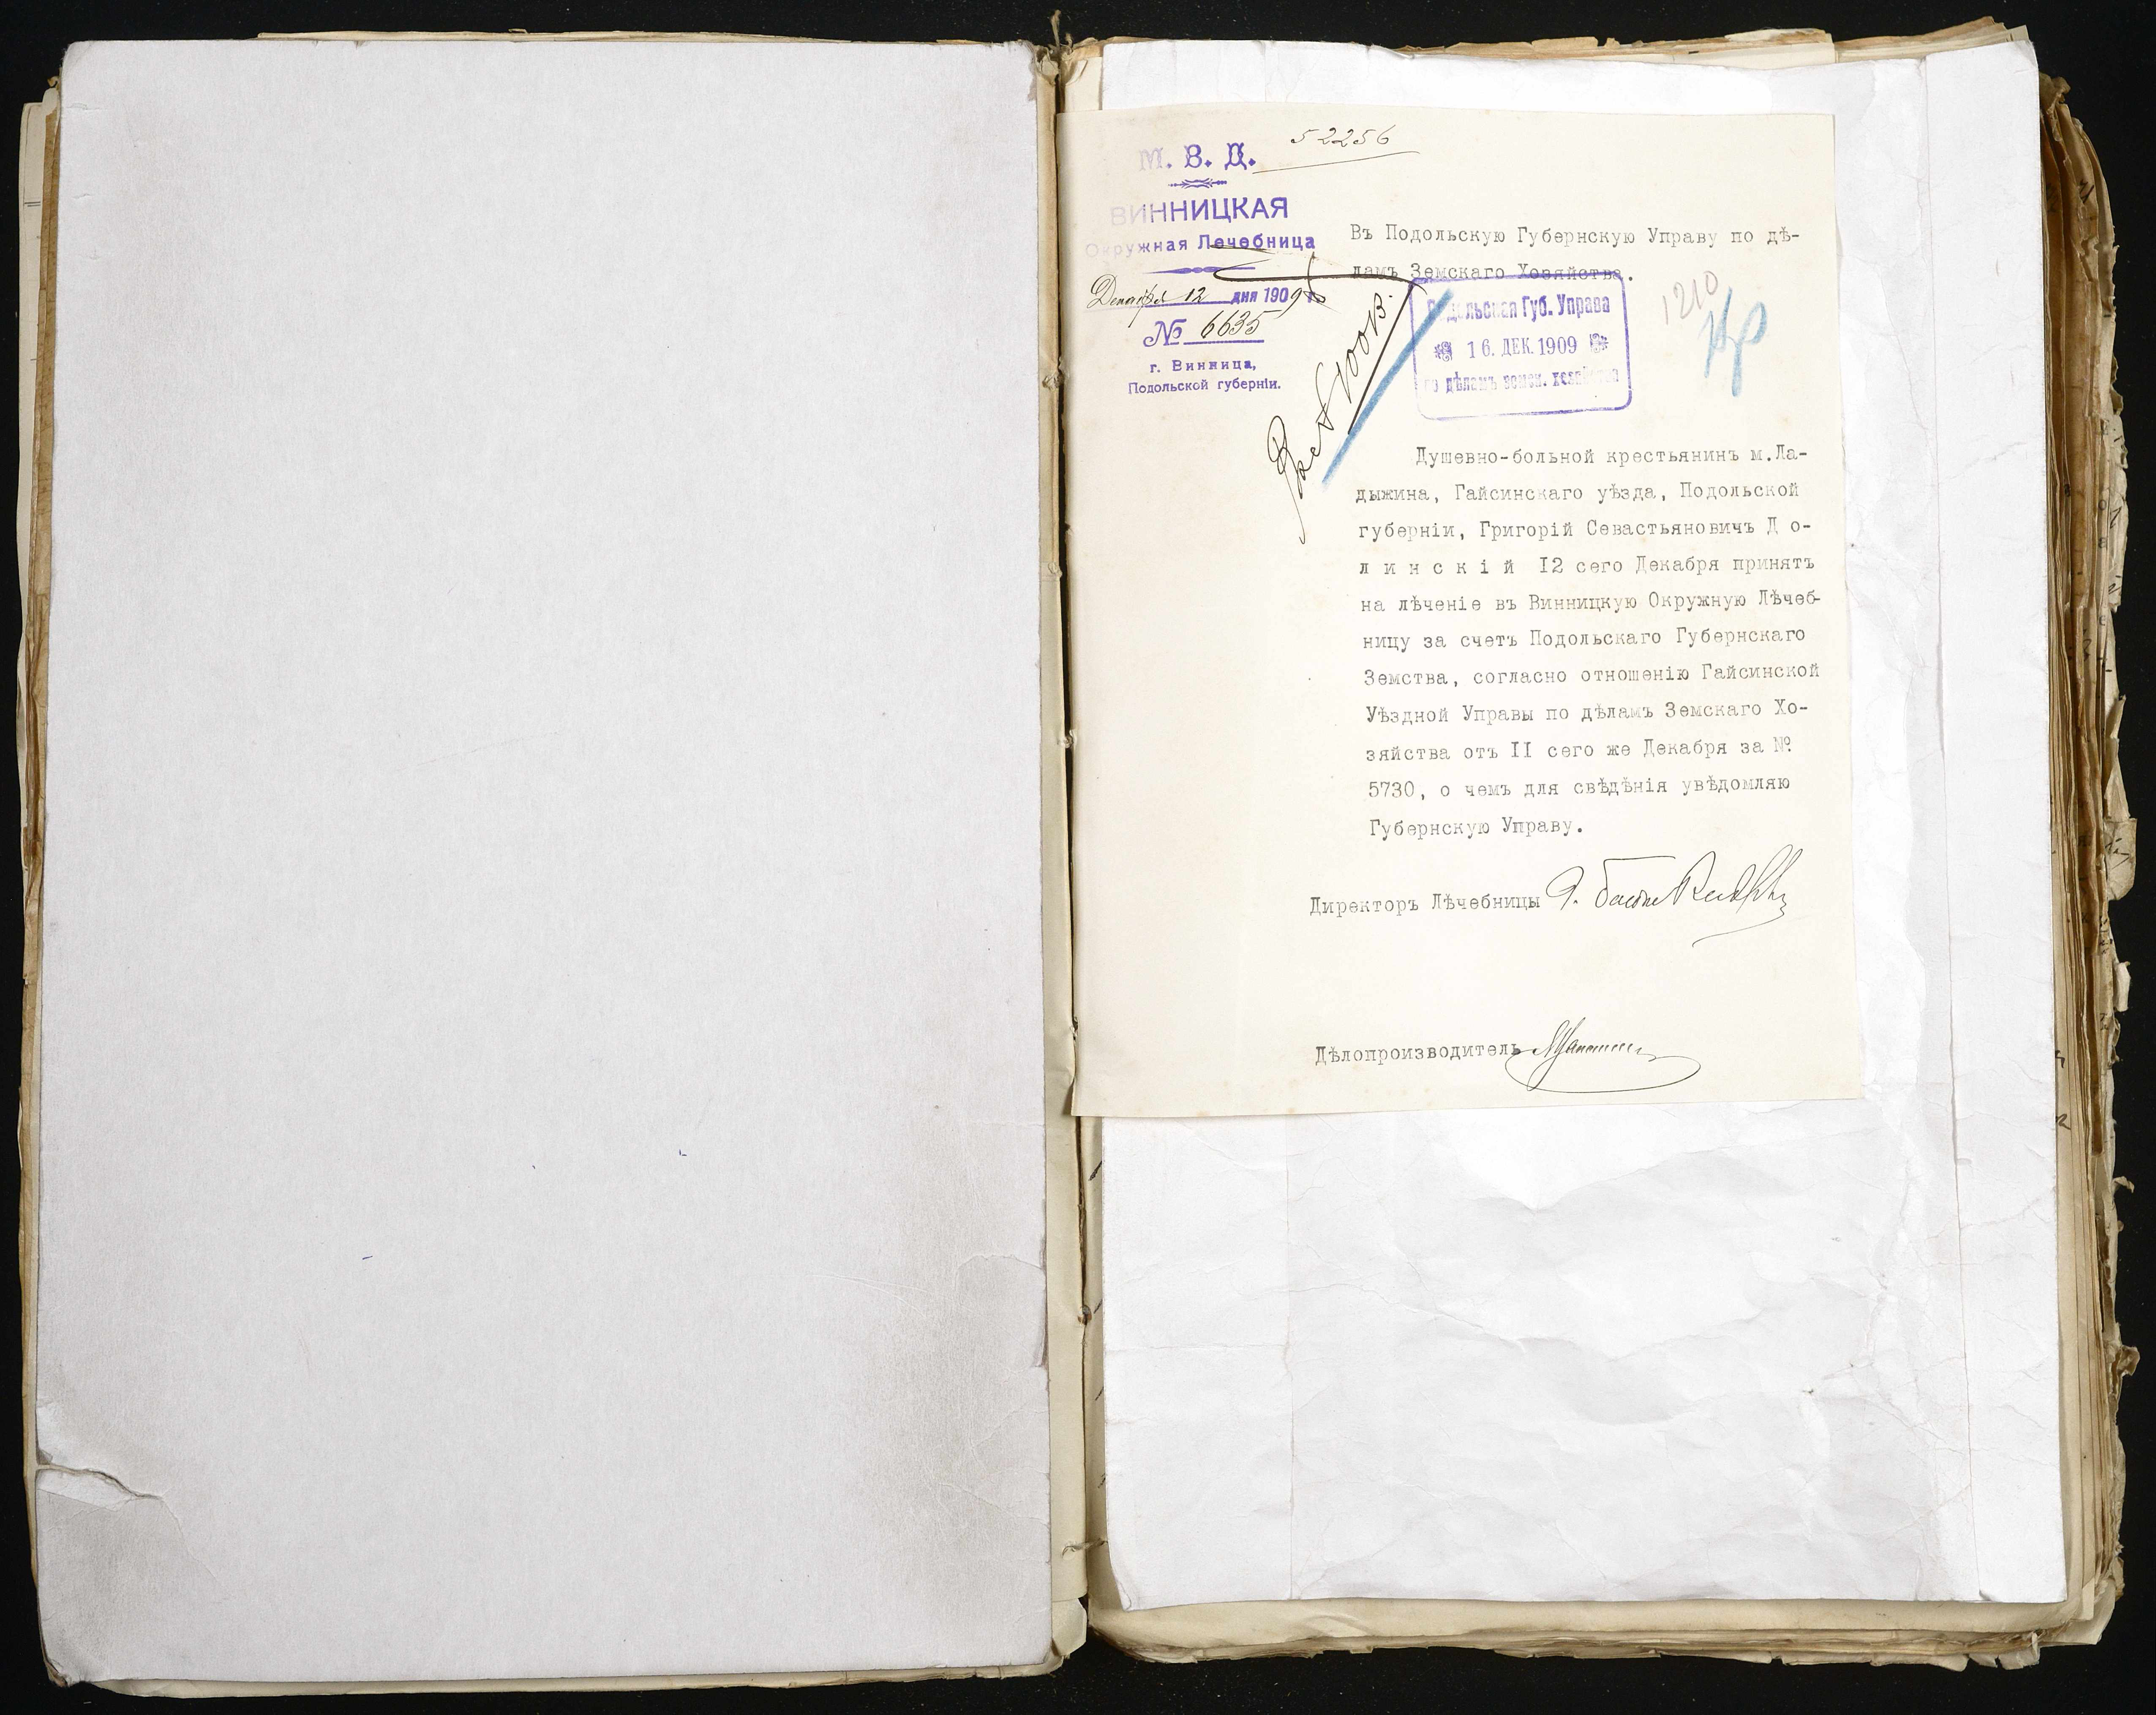 52256
М. В. Д.
ВИННИЦКАЯ
Окружная Лечебница
Декабря 12 дня 1909 г.
№ 6635
г. Винница,
Подольской губерніи.
Въ Подольскую Губернскую Управу по дѣ-
ламъ Земскаго Хозяйства.
Подольская Губ. Управа
16. ДЕК. 1909
по дѣламъ земск. хозяйства
1210
Душевно-больной крестьянинъ м.Ла-
дыжина, Гайсинскаго уѣзда, Подольской
губерніи, Григорій Севастьяновичъ Д о-
л и н с к і й I2 сего Декабря принятъ
на лѣченіе въ Винницкую Окружную Лѣчеб-
ницу за счетъ Подольскаго Губернскаго
Земства, согласно отношенію Гайсинской
Уѣздной Управы по дѣламъ Земскаго Хо-
зяйства отъ II сего же Декабря за №
5730, о чемъ для свѣдѣнія увѣдомляю
Губернскую Управу.
Директоръ Лѣчебницы
Дѣлопроизводитель